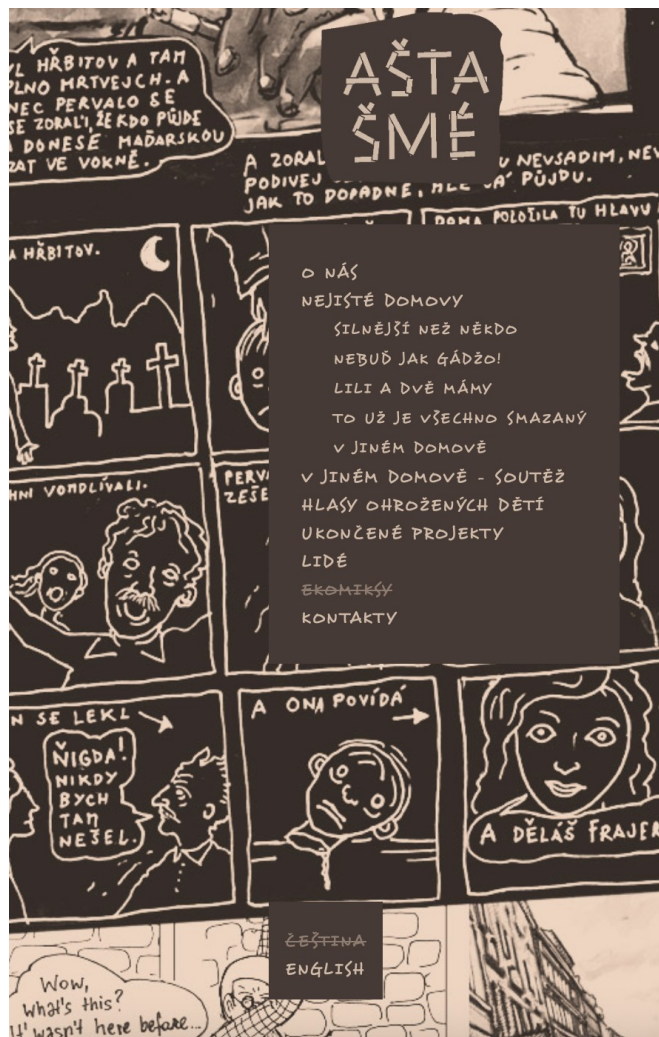 L HŘBITOV A TAM
PLNO MRTVEJCH. A
NEC PERVALO SE
SE ZORALI, ŽE KDO PŮJDE
DONESE MAĎARSKOU
ZAT VE VOKNĚ.
AŠTA
ŠMÉ
A ZORAL U NEVSADIM, NEV
PODIVEJ
JAK TO DOPADNE, HLE JA PŮJDU.
DOMA POLOŽILA TU HLAVU
A HŘBITOV.
O NÁS
NEJISTÉ DOMOVY
SILNĚJŠÍ NEŽ NĚKDO
NEBUĎ JAK GÁDŽO!
LILI A DVĚ MÁMY
TO UŽ JE VŠECHNO SMAZANÝ
V JINÉM DOMOVĚ
V JINÉM DOMOVĚ - SOUTĚŽ
HLASY OHROŽENÝCH DĚTÍ
UKONČENÉ PROJEKTY
LIDÉ
EKOMIKSY
KONTAKTY
HNI VOMDLÍVALI.
PERV
ZEŠE
N SE LEKL
ŇIGDA!
NIKDY
BYCH
TAM
NEŠEL.
A ONA POVÍDÁ
A DĚLÁŠ FRAJER
ČEŠTINA
ENGLISH
Wow,
what's this?
It wasn't here before...